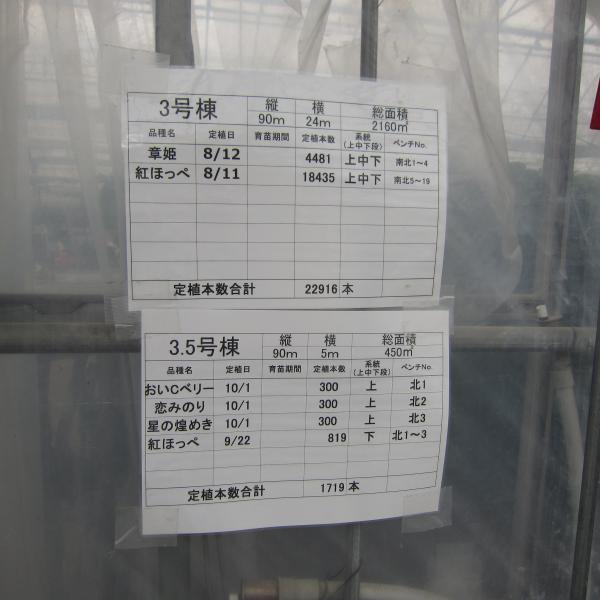 3号棟 縦 横 総面積
90m 24m 2160㎡
品種名 定植日 育苗期間 定植本数 系統(上中下段) ベンチNo.
章姫 8/12 4481 上中下 南北1~4
紅ほっぺ 8/11 18435 上中下 南北5~19
定植本数合計 22916 本
3.5号棟 縦 横 総面積
90m 5m 450㎡
品種名 定植日 育苗期間 定植本数 系統(上中下段) ベンチNo.
おいCベリー 10/1 300 上 北1
恋みのり 10/1 300 上 北2
星の煌めき 10/1 300 上 北3
紅ほっペ 9/22 819 下 北1~3
定植本数合計 1719 本